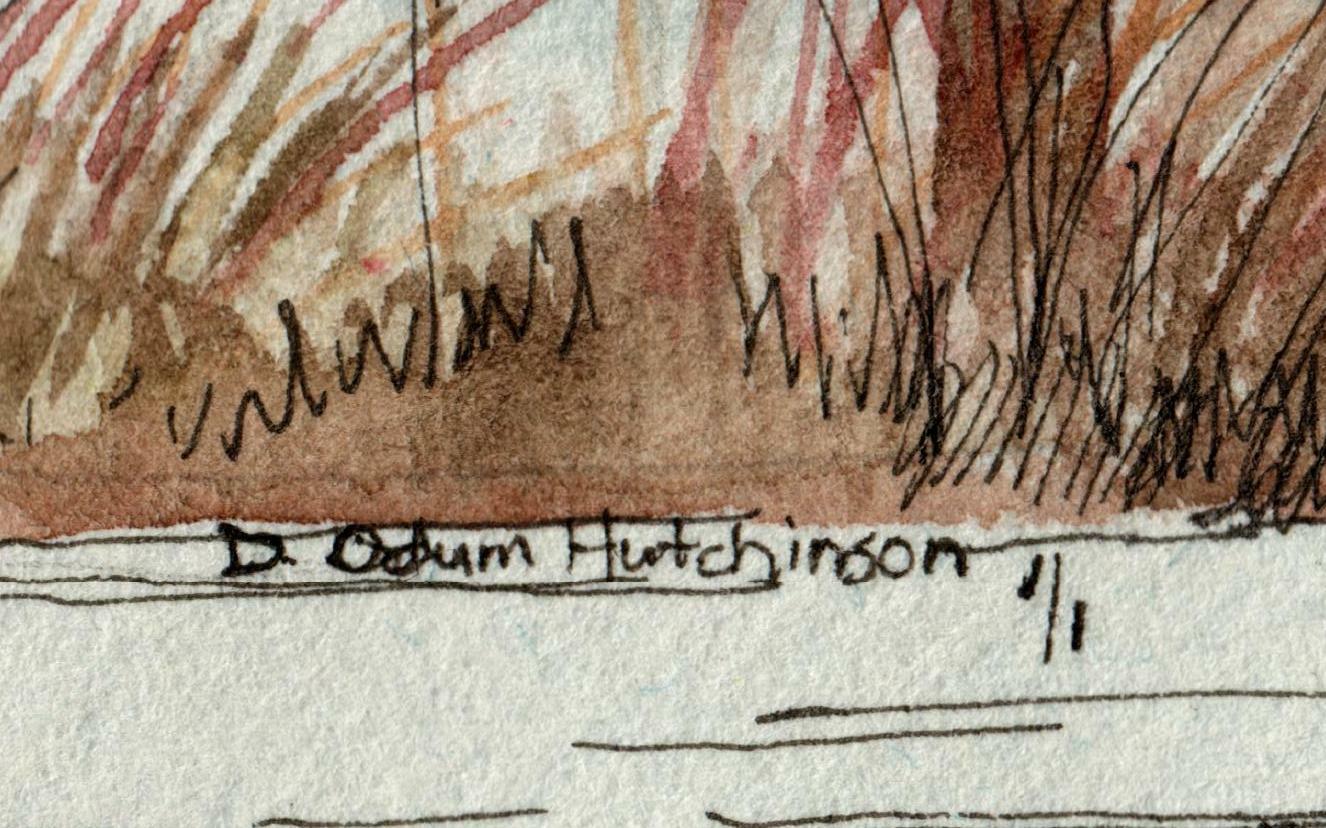 D. Odum Hutchinson 1/1